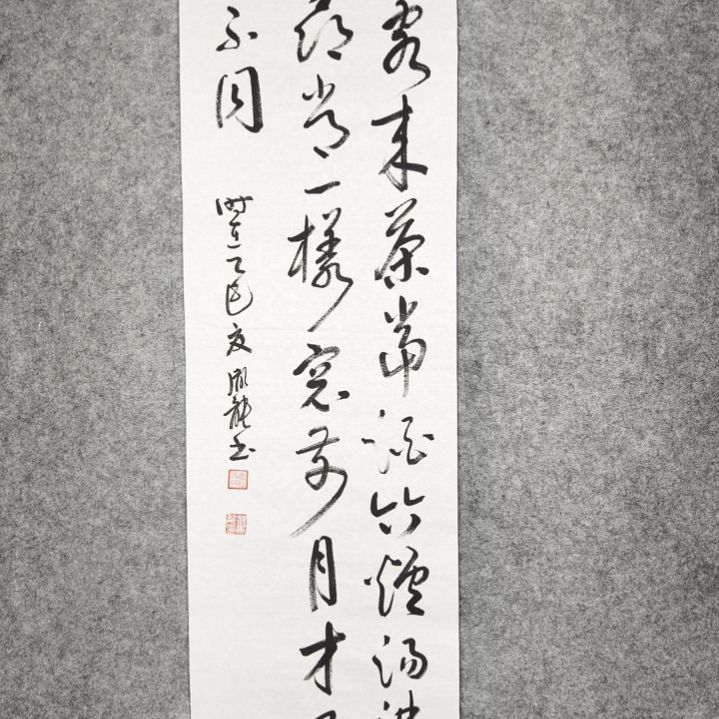 客来茶當酒竹爐湯沸
尋常一樣窓前月才
不同
時在乙巳夏